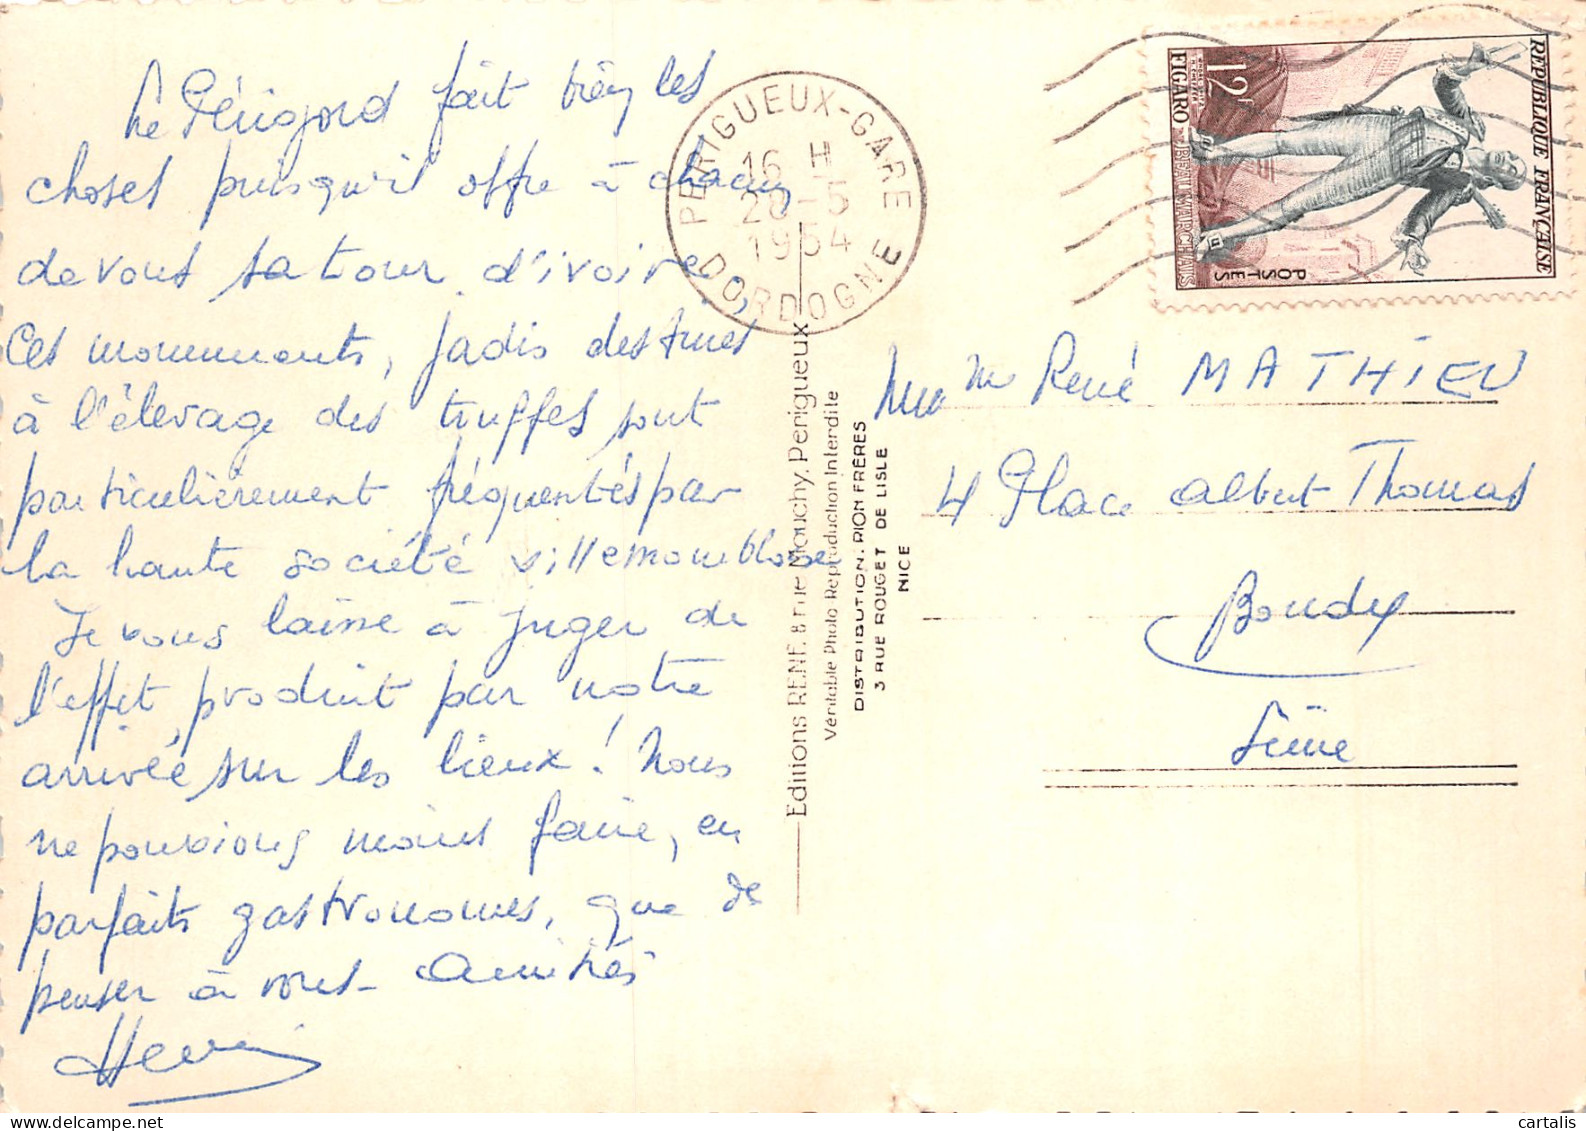 Le Périgord fait bien les
choses puisqu'il offre à chacun
de vous sa tour d'ivoire,
Ces monuments, jadis destinés
à l'élevage des truffes sont
particulièrement fréquentés par
la haute société villemombloise
Je vous laisse à juger de
l'effet produit par notre
arrivée sur les lieux! Nous
ne pouvions moins faire, en
parfaits gastronomes, que de
penser à vous - Amitiés
Henri
PERIGUEUX-GARE
16 H
28-5
1954
DORDOGNE
REPUBLIQUE FRANÇAISE
12F
FIGARO
BEAUMARCHAIS
POSTES
Editions RENE, 8 rue Mouchy, Perigueux
Véritable Photo Reproduction Interdite
DISTRIBUTION. RION FRÈRES
3 RUE ROUGET DE LISLE
NICE
M René MATHIEU
4 Place Albert Thomas
Bondy
Seine
cartalis